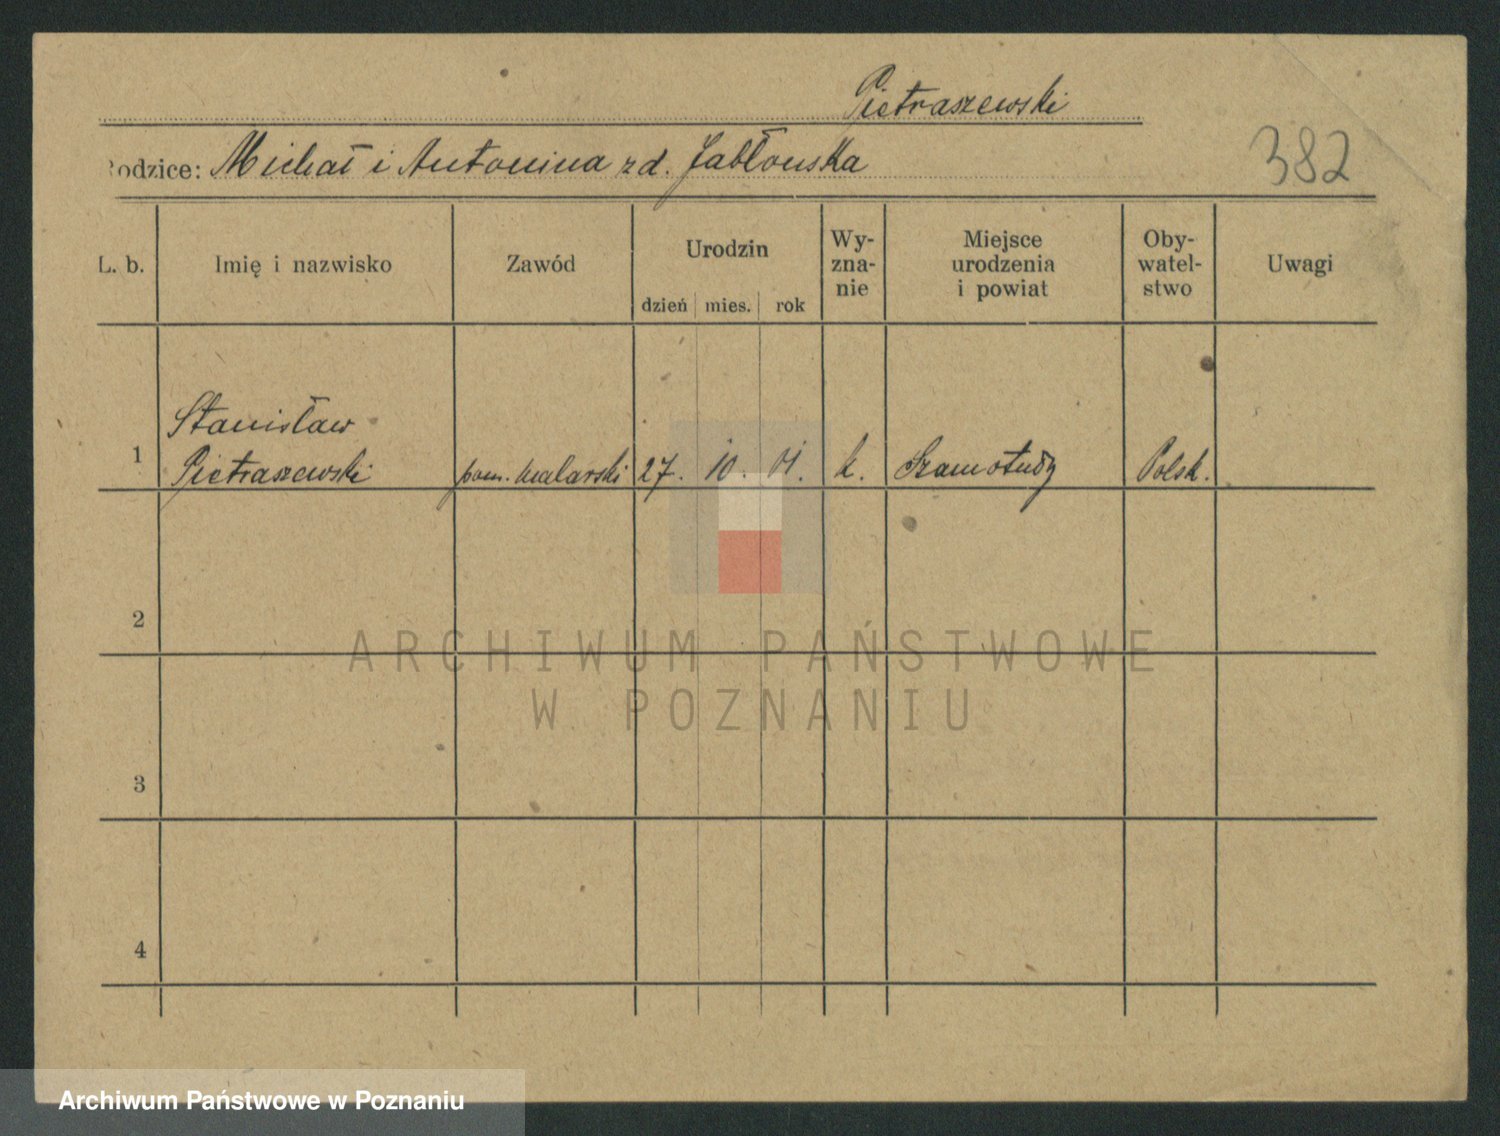 Pietraszewski
Rodzice: Michał i Antonina zd. Jabłonska
382
L. b. Imię i nazwisko Zawód Urodzin dzień mies. rok Wy-zna-nie Miejsce urodzenia i powiat Oby-watel-stwo Uwagi
Stanisław
1 Pietraszewski pom. malarski 27. 10. 01. k. Szamotuły Polsk.
2
3
4
ARCHIWUM PAŃSTWOWE
W POZNANIU
Archiwum Państwowe w Poznaniu